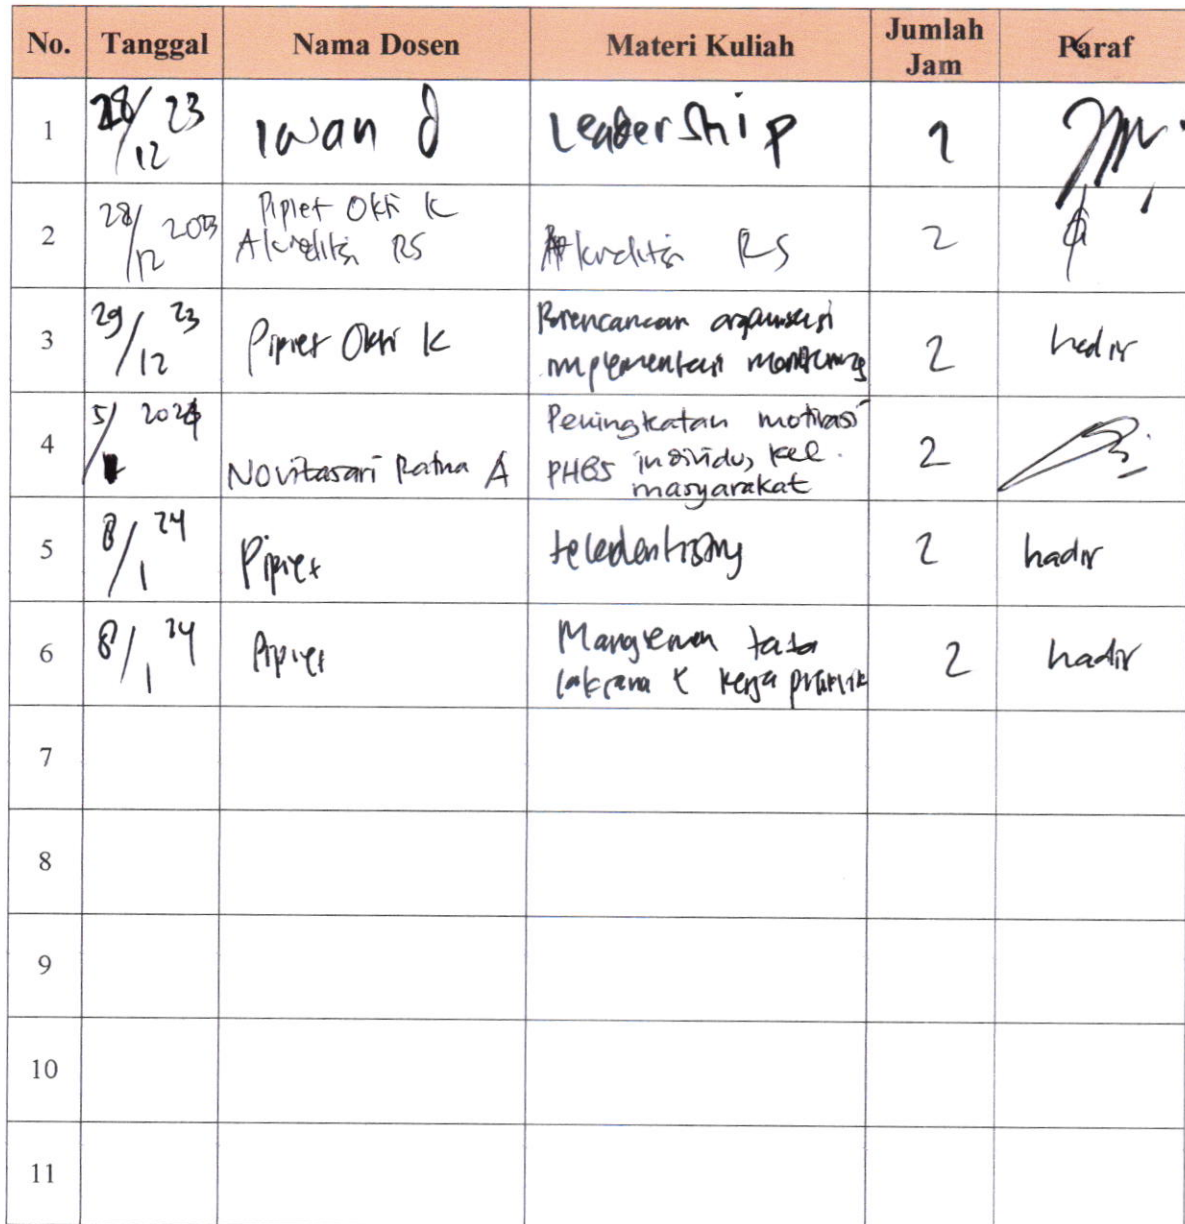 No. Tanggal Nama Dosen Materi Kuliah Jumlah Jam Paraf
1 28/12 23 Iwan d Leadership 1
2 28/12 2023 Pipiet Okti K Akreditsi RS Akreditsi RS 2
3 29/12 23 Pipiet Okti K Perencanaan organisasi implementasi monitoring 2 hadir
4 5/1 2024 Novitasari Ratna A Peningkatan motivasi PHBS individu, kel. masyarakat 2
5 8/1 24 Pipiet teledentistry 2 hadir
6 8/1 24 Pipiet tata laksana kerja praktik 2 hadir
7
8
9
10
11